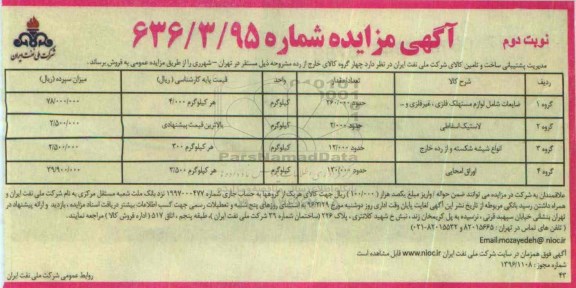 نوبت دوم
آگهی مزایده شماره ۶۳۶/۳/۹۵
شرکت ملی نفت ایران
مدیریت پشتیبانی ساخت و تامین کالای شرکت ملی نفت ایران در نظر دارد چهار گروه کالای خارج از رده مشروحه ذیل مستقر در تهران - شهرری را از طریق مزایده عمومی به فروش برساند.
ردیف شرح کالا تعداد/مقدار واحد قیمت پایه کارشناسی (ریال) میزان سپرده (ریال)
گروه ۱ ضایعات شامل لوازم مستهلک فلزی، غیرفلزی و ... حدود ۲۶۰/۰۰۰ کیلوگرم هر کیلوگرم ۴/۰۰۰ ۷۸/۰۰۰/۰۰۰
گروه ۲ لاستیک اسقاطی حدود ۲/۰۰۰ کیلوگرم بالاترین قیمت پیشنهادی ۲/۵۰۰/۰۰۰
گروه ۳ انواع شیشه شکسته و از رده خارج حدود ۱۲/۰۰۰ کیلوگرم هر کیلوگرم ۳۰۰ ۲/۵۰۰/۰۰۰
گروه ۴ اوراق امحایی حدود ۱۳۰/۰۰۰ کیلوگرم هر کیلوگرم ۲/۵۰۰ ۳۹/۹۰۰/۰۰۰
ParsNamadData
علاقمندان به شرکت در مزایده می توانند ضمن حواله / واریز مبلغ یکصد هزار (۱۰۰/۰۰۰) ریال جهت کالای هریک از گروهها به حساب جاری شماره نزد بانک ملت شعبه مستقل مرکزی به نام شرکت ملی نفت ایران و
همراه داشتن رسید بانکی مربوطه از تاریخ نشر این آگهی لغایت پایان وقت اداری روز دوشنبه مورخ ۹۶/۳/۲۹ به استثنای روزهای پنج شنبه و تعطیلات رسمی جهت کسب اطلاعات بیشتر و دریافت اسناد مزایده، بازدید و ارائه پیشنهاد در
تهران بنشانی خیابان سپهبد قرنی، نرسیده به پل کریمخان زند، نبش خ شهید کلانتری، پلاک ۲۲۶ (ساختمان شماره ۳۹ شرکت ملی نفت ایران)، طبقه پنجم، اتاق ۵۱۷ (اداره فروش کالا) مراجعه نمایند.
(تلفن های تماس در تهران: ۸۲۰۱۵۶۶۵ و ۸۲۰۱۵۵۴۲-۰۲۱)
Email:mozayedeh@ nioc.ir
آگهی فوق همزمان در سایت شرکت ملی نفت ایران www.nioc.ir قابل مشاهده است
شماره مجوز: ۱۳۹۶/۱۱۰۸
۴۲ روابط عمومی شرکت ملی نفت ایران